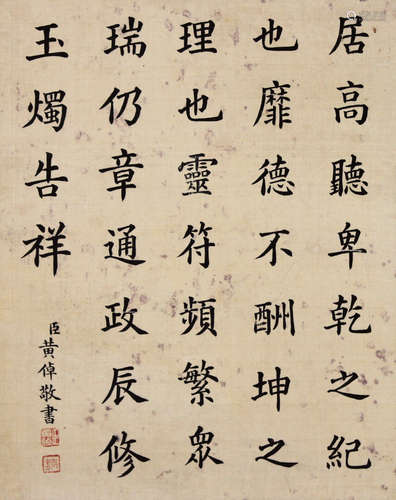 居高聽卑乾之紀
也靡德不酬坤之
理也靈符頻繁眾
瑞仍章通政辰修
玉燭告祥
臣黄倬敬書